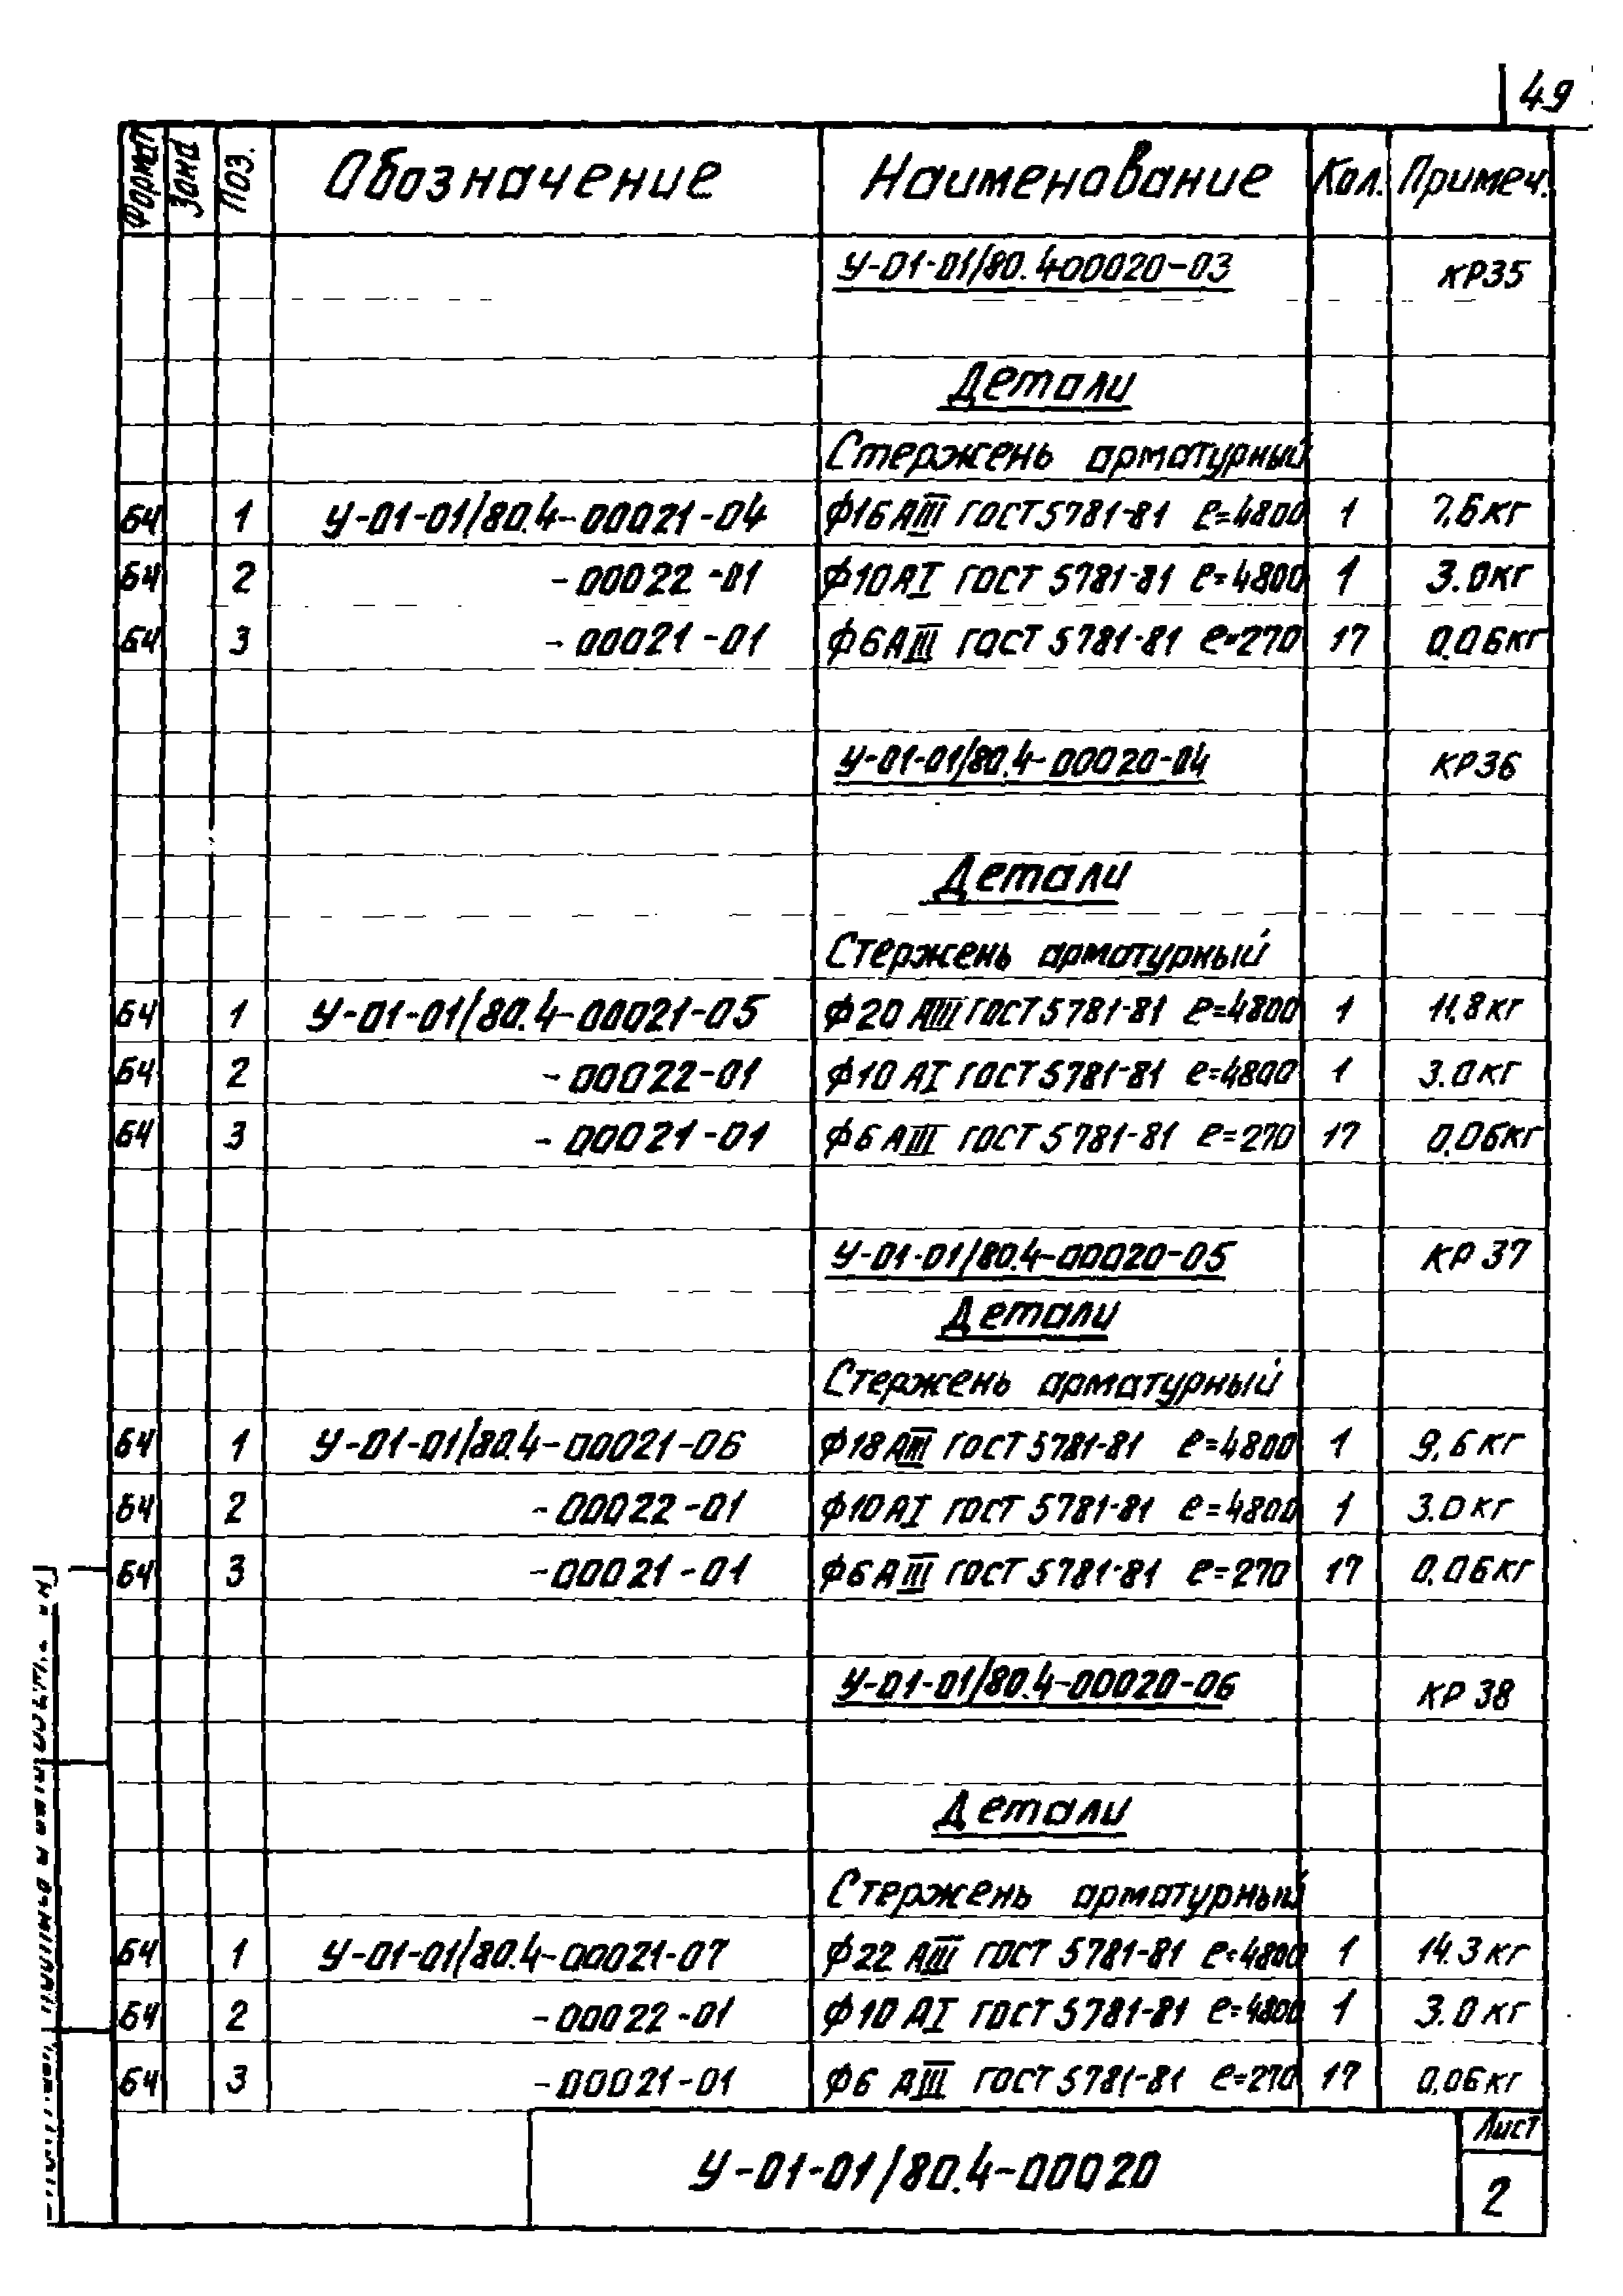 49
Формат Зона Поз. Обозначение Наименование Кол. Примеч.
У-01-01/80.400020-03 КР35
Детали
Стержень арматурный
БЧ 1 У-01-01/80.4-00021-04 Ф16АIII ГОСТ 5781-81 e=4800 1 7,6кг
БЧ 2 -00022-01 Ф10АI ГОСТ 5781-81 e=4800 1 3.0кг
БЧ 3 -00021-01 Ф6АIII ГОСТ 5781-81 e=270 17 0.06кг
У-01-01/80.4-00020-04 КР36
Детали
Стержень арматурный
БЧ 1 У-01-01/80.4-00021-05 Ф20 АIII ГОСТ 5781-81 e=4800 1 11,8кг
БЧ 2 -00022-01 Ф10 АI ГОСТ 5781-81 e=4800 1 3.0кг
БЧ 3 -00021-01 Ф6 АIII ГОСТ 5781-81 e=270 17 0,06кг
У-01-01/80.4-00020-05 КР 37
Детали
Стержень арматурный
БЧ 1 У-01-01/80.4-00021-06 Ф18 АIII ГОСТ 5781-81 e=4800 1 9,6кг
БЧ 2 -00022-01 Ф10АI ГОСТ 5781-81 e=4800 1 3.0кг
БЧ 3 -00021-01 Ф6АIII ГОСТ 5781-81 e=270 17 0,06кг
У-01-01/80.4-00020-06 КР 38
Детали
Стержень арматурный
БЧ 1 У-01-01/80.4-00021-07 Ф22 АIII ГОСТ 5781-81 e=4800 1 14.3кг
БЧ 2 -00022-01 Ф10 АI ГОСТ 5781-81 e=4800 1 3.0кг
БЧ 3 -00021-01 Ф6 АIII ГОСТ 5781-81 e=270 17 0,06кг
У-01-01/80.4-00020
Лист
2